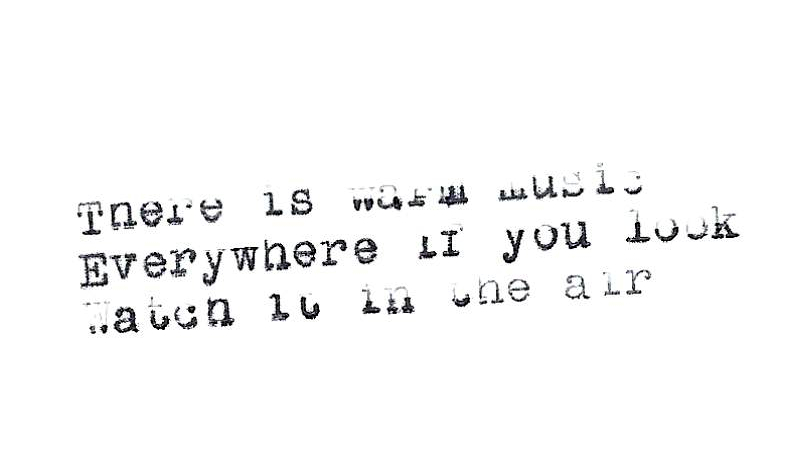 There is warm music
Everywhere if you look
Watch it in the air